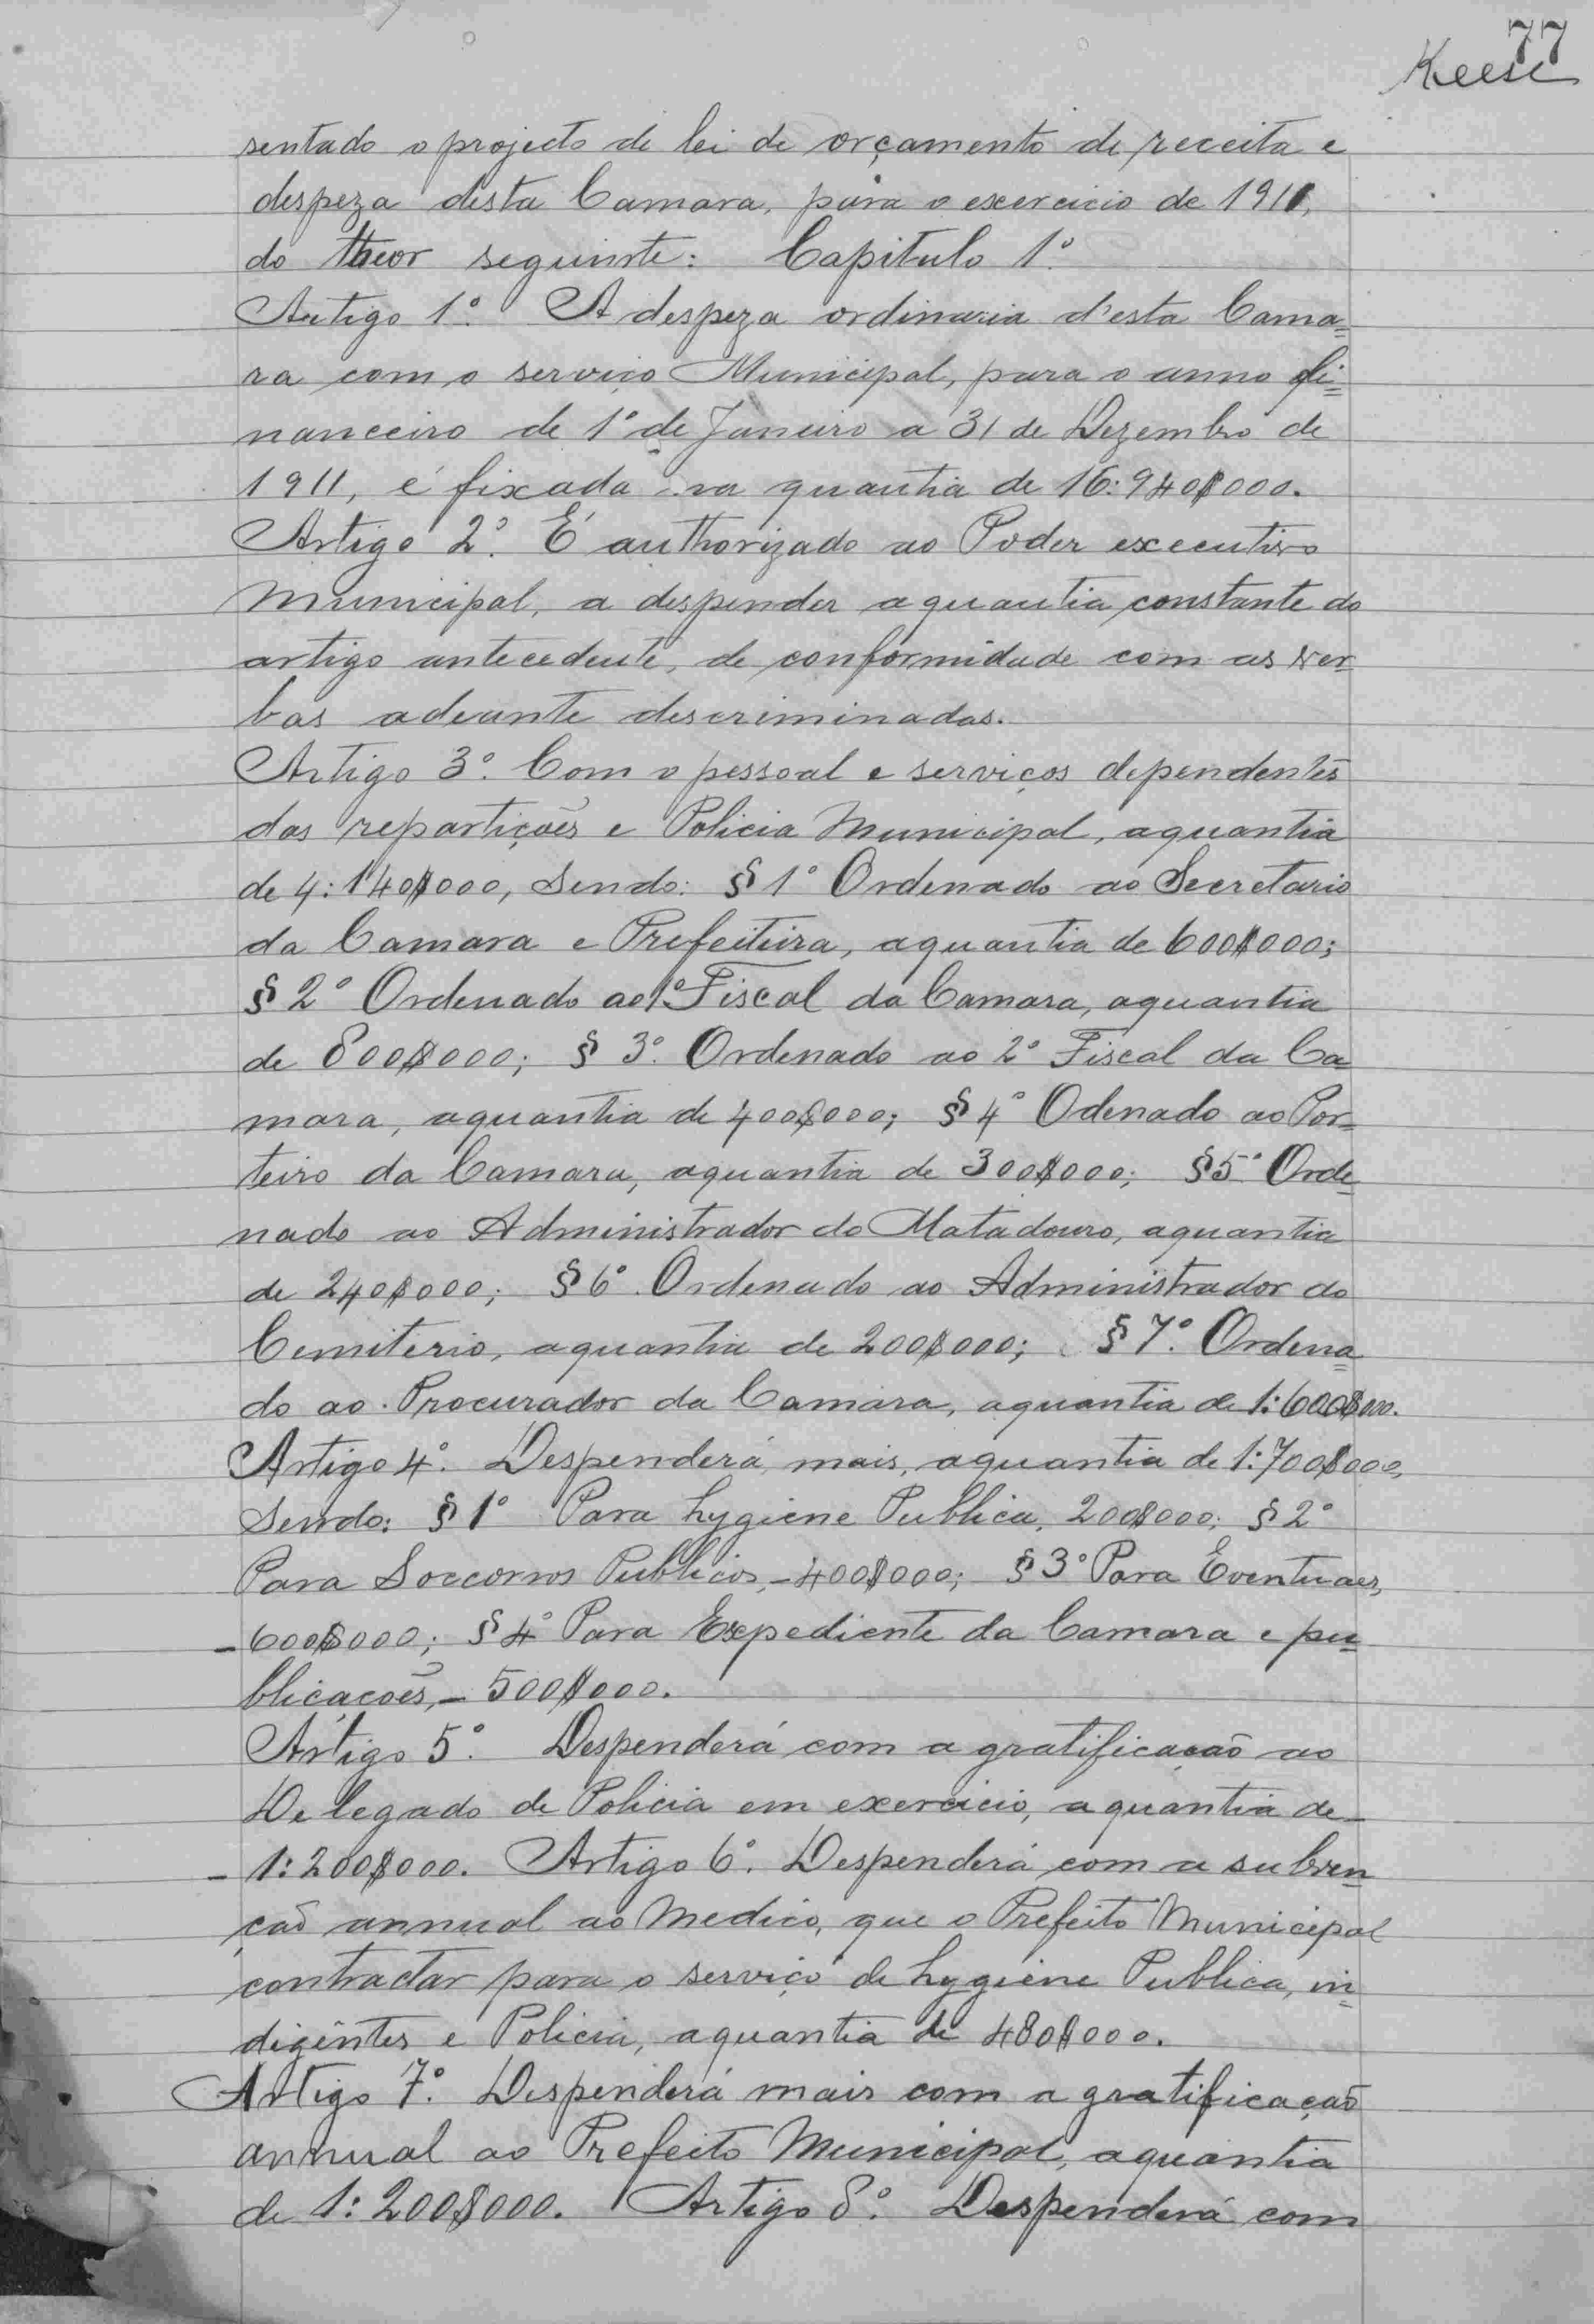 77
Keese
sentado o projecto de lei de orçamento de receita e
despeza desta Camara, para o exercicio de 1911,
do theor seguinte: Capitulo 1º.
Artigo 1º. A despeza ordinaria d'esta Cama=
ra com o serviço Municipal, para o anno fi=
nanceiro de 1º de Janeiro a 31 de Dezembro de
1911, é fixada na quantia de 16:940$000.
Artigo 2º. É authorizado ao Poder executivo
Municipal, a despender a quantia constante do
artigo antecedente, de conformidade com as ver-
bas adeante descriminadas.
Artigo 3º. Com o pessoal e serviços dependentes
das repartições e Policia Municipal, aquantia
de 4:140$000, Sendo: § 1º Ordenado ao Secretario
da Camara e Prefeiteira, aquantia de 600$000;
§ 2º Ordenado ao 1º Fiscal da Camara, aquantia
de 800$000; § 3º. Ordenado ao 2º Fiscal da Ca
mara, aquantia de 400$000; § 4º Odenado ao Por=
teiro da Camara, aquantia de 300$000; § 5º Orde-
nado ao Administrador do Matadouro, aquantia
de 240$000; § 6º. Ordenado ao Administrador do
Cemiterio, aquantia de 200$000; § 7º. Ordena=
do ao Procurador da Camara, aquantia de 1:600$000.
Artigo 4º. Despenderá mais, aquantia de 1:700$000,
Sendo: § 1º Para hygiene Publica, 200$000; § 2º
Para Soccorros Publicos,-400$000; § 3º Para Eventuaes,
-600$000; § 4º Para Expediente da Camara e pu=
blicações,- 500$000.
Artigo 5º. Despenderá com a gratificação ao
Delegado de Policia em exercicio, aquantia de-
- 1:200$000. Artigo 6º. Despenderá com a subven=
ção annual ao Medico, que o Prefeito Municipal
contractar para o serviço de hygiene Publica, in=
digêntes e Policia, aquantia de 480$000.
Artigo 7º. Despenderá mais com a gratificação
annual ao Prefeito Municipal, aquantia
de 1:200$000. Artigo 8º. Despenderá com